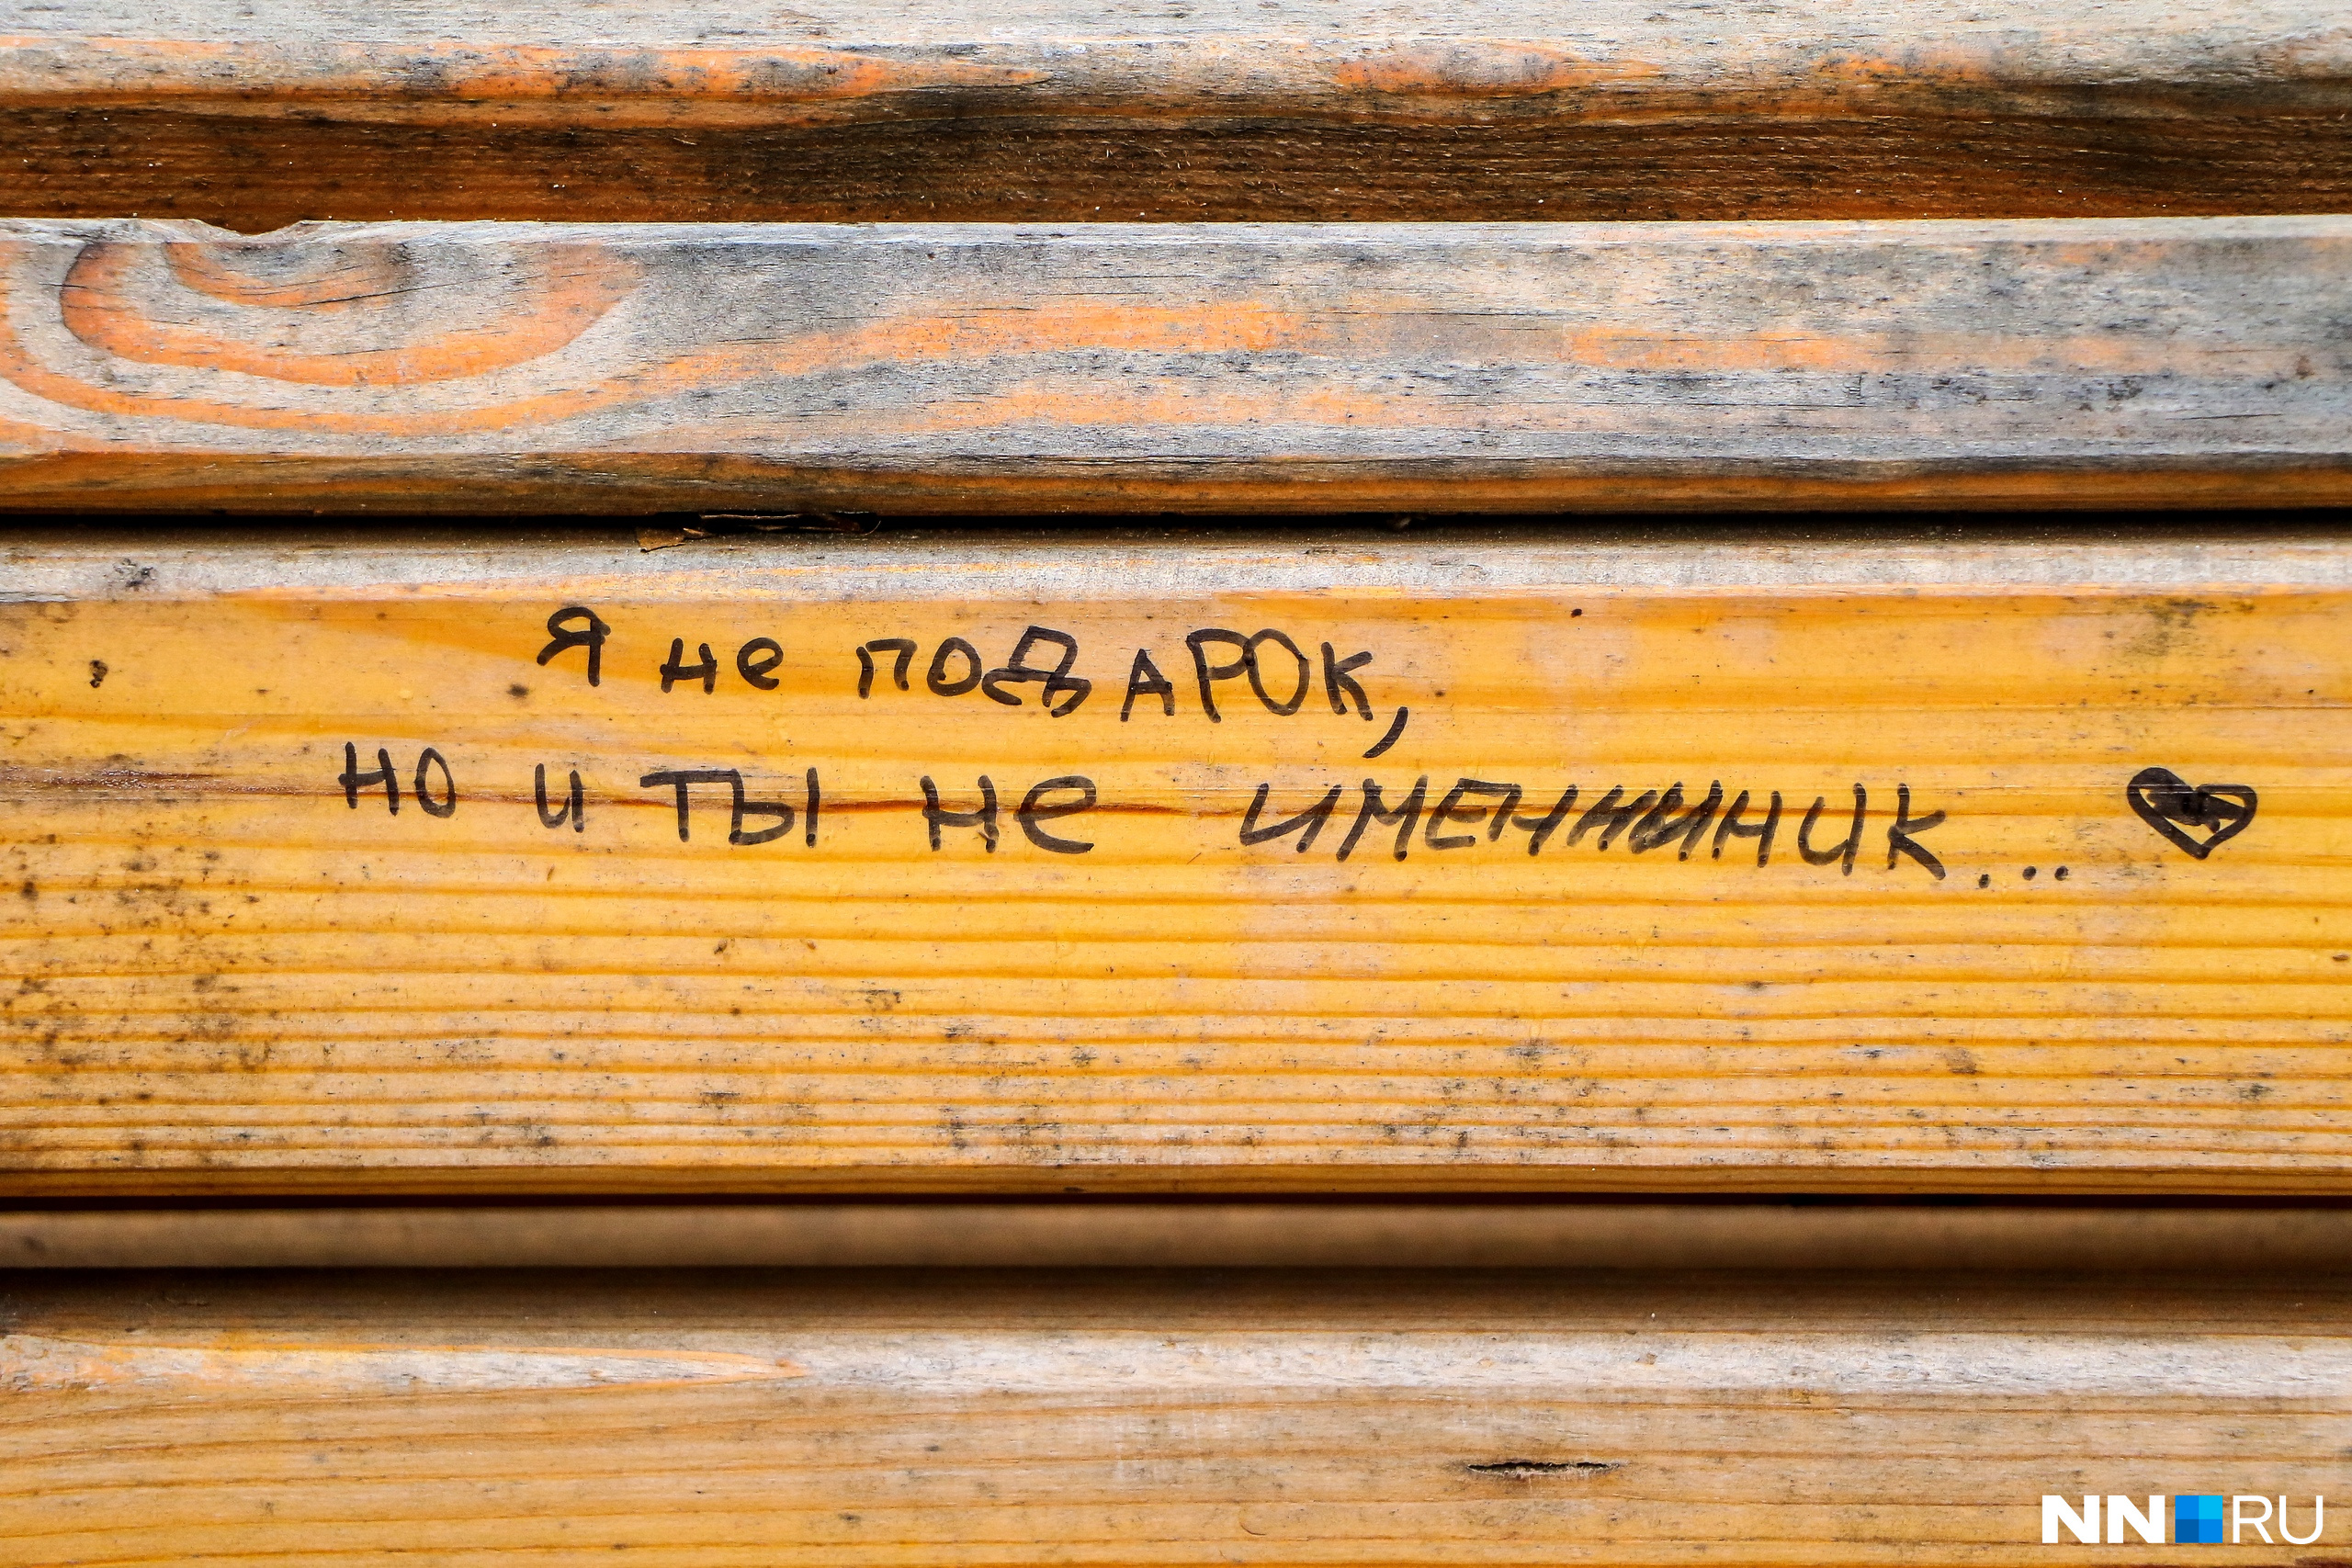 Я не подАРОК,
но и ты не именинник... ♥
NN RU